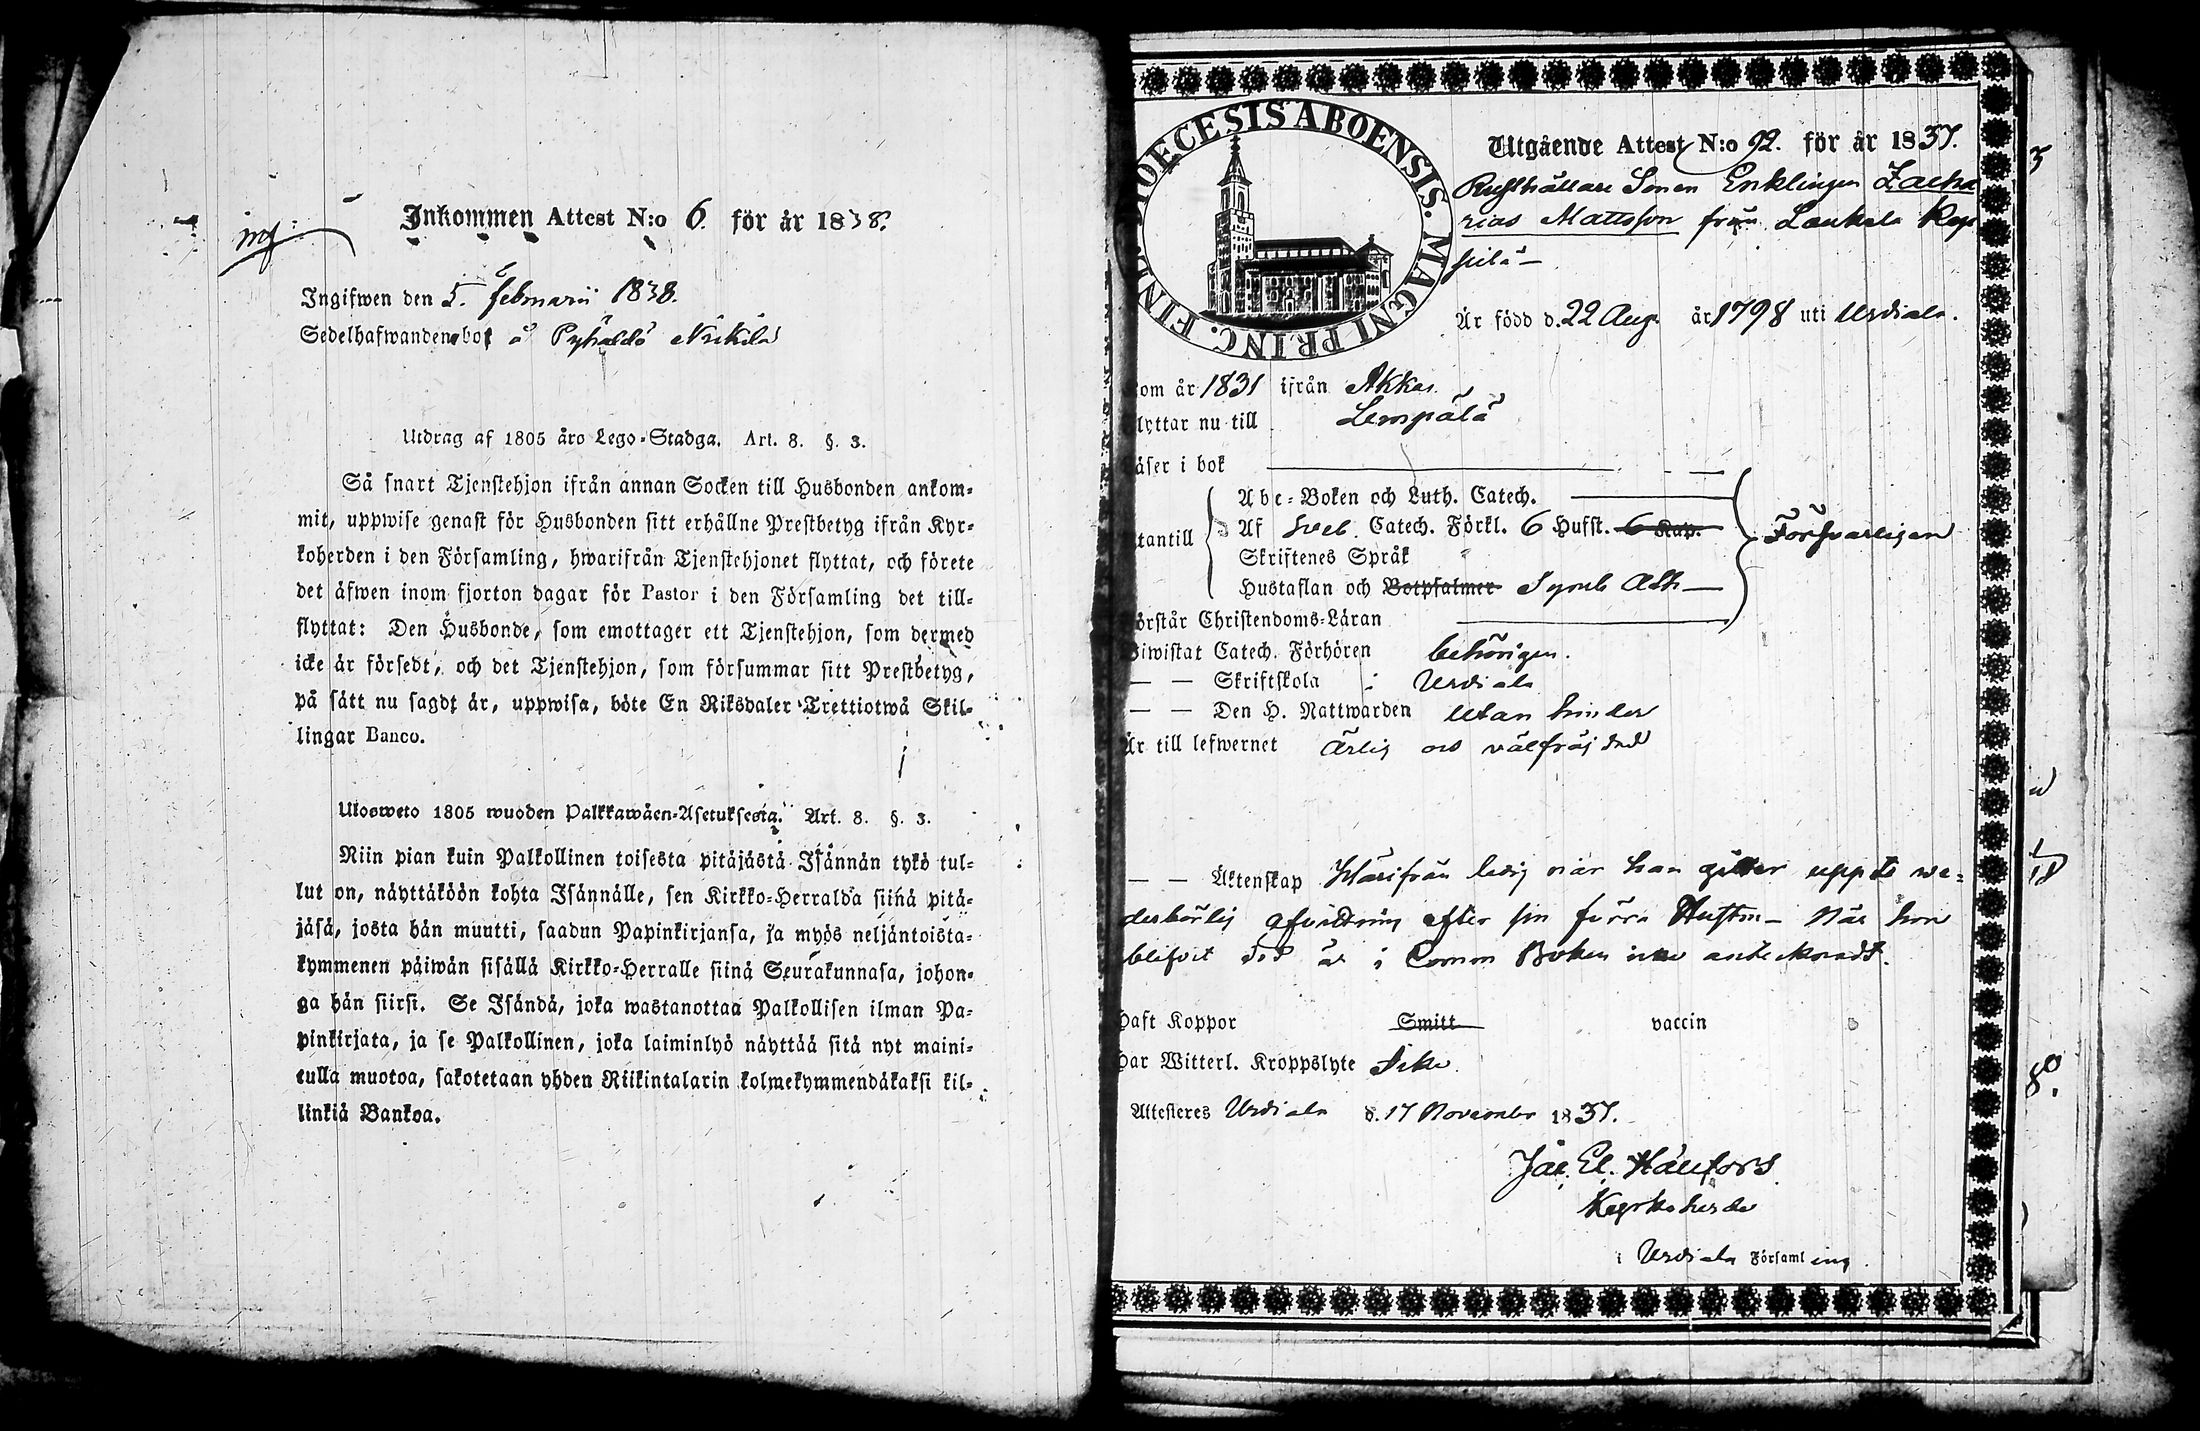 Inkommen Attest N:o 6. för år 1838.
Ingifwen den 5. Februarii 1838.
Sedelhafwanden bor å Pyhäldö Nikkilä
Utdrag af 1805 åro Lego-Stadga. Art. 8. §. 3.
Så snart Tjenstehjon ifrån annan Socken till Husbonden ankom-
mit, uppwise genast för Husbonden sitt erhållne Prestbetyg ifrån Kyr-
koherden i den Församling, hwarifrån Tjenstehjonet flyttat, och förete
det äfwen inom fjorton dagar för Pastor i den Församling det till-
flyttat: Den Husbonde, som emottager ett Tjenstehjon, som dermed
icke är försedt, och det Tjenstehjon, som försummar sitt Prestbetyg,
på sätt nu sagdt är, uppwisa, böte En Riksdaler Trettiotwå Skil-
lingar Banco.
Ulosweto 1805 wuoden Palkkawäen-Asetuksesta. Art. 8. §. 3.
Niin pian kuin Palkollinen toisesta pitäjästä Isännän tykö tul-
lut on, näyttäköön kohta Isännälle, sen Kirkko-Herralda siinä pitä-
jäsä, josta hän muutti, saadun Papinkirjansa, ja myös neljäntoista-
kymmenen päiwän sisällä Kirkko-Herralle siinä Seurakunnasa, johon-
ga hän siirsi. Se Isändä, joka wastanottaa Palkollisen ilman Pa-
pinkirjata, ja se Palkollinen, joka laiminlyö näyttää sitä nyt maini-
tulla muotoa, sakotetaan yhden Riikintalarin kolmekymmendäkaksi kil-
linkiä Bankoa.
DIOECESIS ABOENSIS. MAGNI PRINC. FINL.
Utgående Attest N:o 92. för år 1837.
Rusthållare Sonen Enklingen Zacha
rias Mattsson från Laukela Rap
pilä
Är född d. 22 Aug. år 1798 uti Urdiala.
kom år 1831 ifrån Akkas
lyttar nu till Lempälä
äser i bok
Abc-Boken och Luth. Catech.
tantill Af Sveb. Catech. Förkl. 6 Hufst. 6 Kap. Försvarligen
Skriftenes Språk
Hustaflan och Botpsalmer Symb Ath
örstår Christendoms-Läran
Biwistat Catech. Förhören behörigen.
— — Skriftskola i Urdiala
— — Den H. Nattwarden utan hinder
Är till lefwernet Ärlig och välfräjdad
— — Äktenskap Härifrån ledig när han gitter uppte we-
derbörlig afvittring efter sin förra Hustru — När hon
blifvit död är i Comm Boken icke antecknadt.
Haft Koppor Smitt vaccin
Har Witterl. Kroppslyte Icke.
Attesteres Urdiala d. 17 November 1837.
Jac. El. Hällfors
Kyrkoherde
i Urdiala Församling.